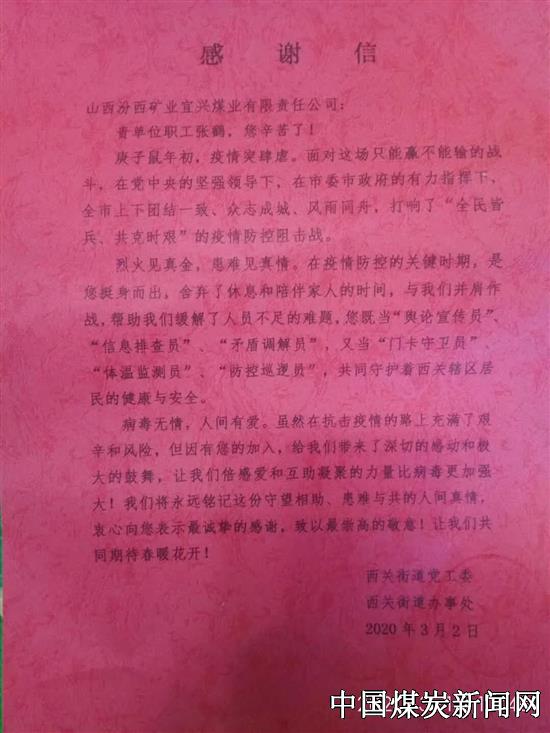 感 谢 信
山西汾西矿业宜兴煤业有限责任公司：
贵单位职工张鹤，您辛苦了！
庚子鼠年初，疫情突肆虐。面对这场只能赢不能输的战
斗，在党中央的坚强领导下，在市委市政府的有力指挥下，
全市上下团结一致、众志成城、风雨同舟，打响了“全民皆
兵、共克时艰”的疫情防控阻击战。
烈火见真金，患难见真情。在疫情防控的关键时期，是
您挺身而出，舍弃了休息和陪伴家人的时间，与我们并肩作
战，帮助我们缓解了人员不足的难题，您既当“舆论宣传员”、
“信息排查员”、“矛盾调解员”，又当“门卡守卫员”
“体温监测员”、“防控巡逻员”，共同守护着西关辖区居
民的健康与安全。
病毒无情，人间有爱。虽然在抗击疫情的路上充满了艰
辛和风险，但因有您的加入，给我们带来了深切的感动和极
大的鼓舞，让我们倍感爱和互助凝聚的力量比病毒更加强
大！我们将永远铭记这份守望相助、患难与共的人间真情，
衷心向您表示最诚挚的感谢，致以最崇高的敬意！让我们共
同期待春暖花开！
西关街道党工委
西关街道办事处
2020 年 3 月 2 日
中国煤炭新闻网